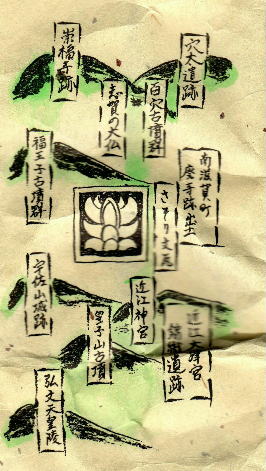 穴太遺跡
崇福寺跡
百穴古墳群
志賀の大仏
南滋賀町
廃寺跡出土
さそり文瓦
福王子古墳群
近江神宮
宇佐山城跡
近江大津宮
錦織遺跡
皇子山古墳
弘文天皇陵